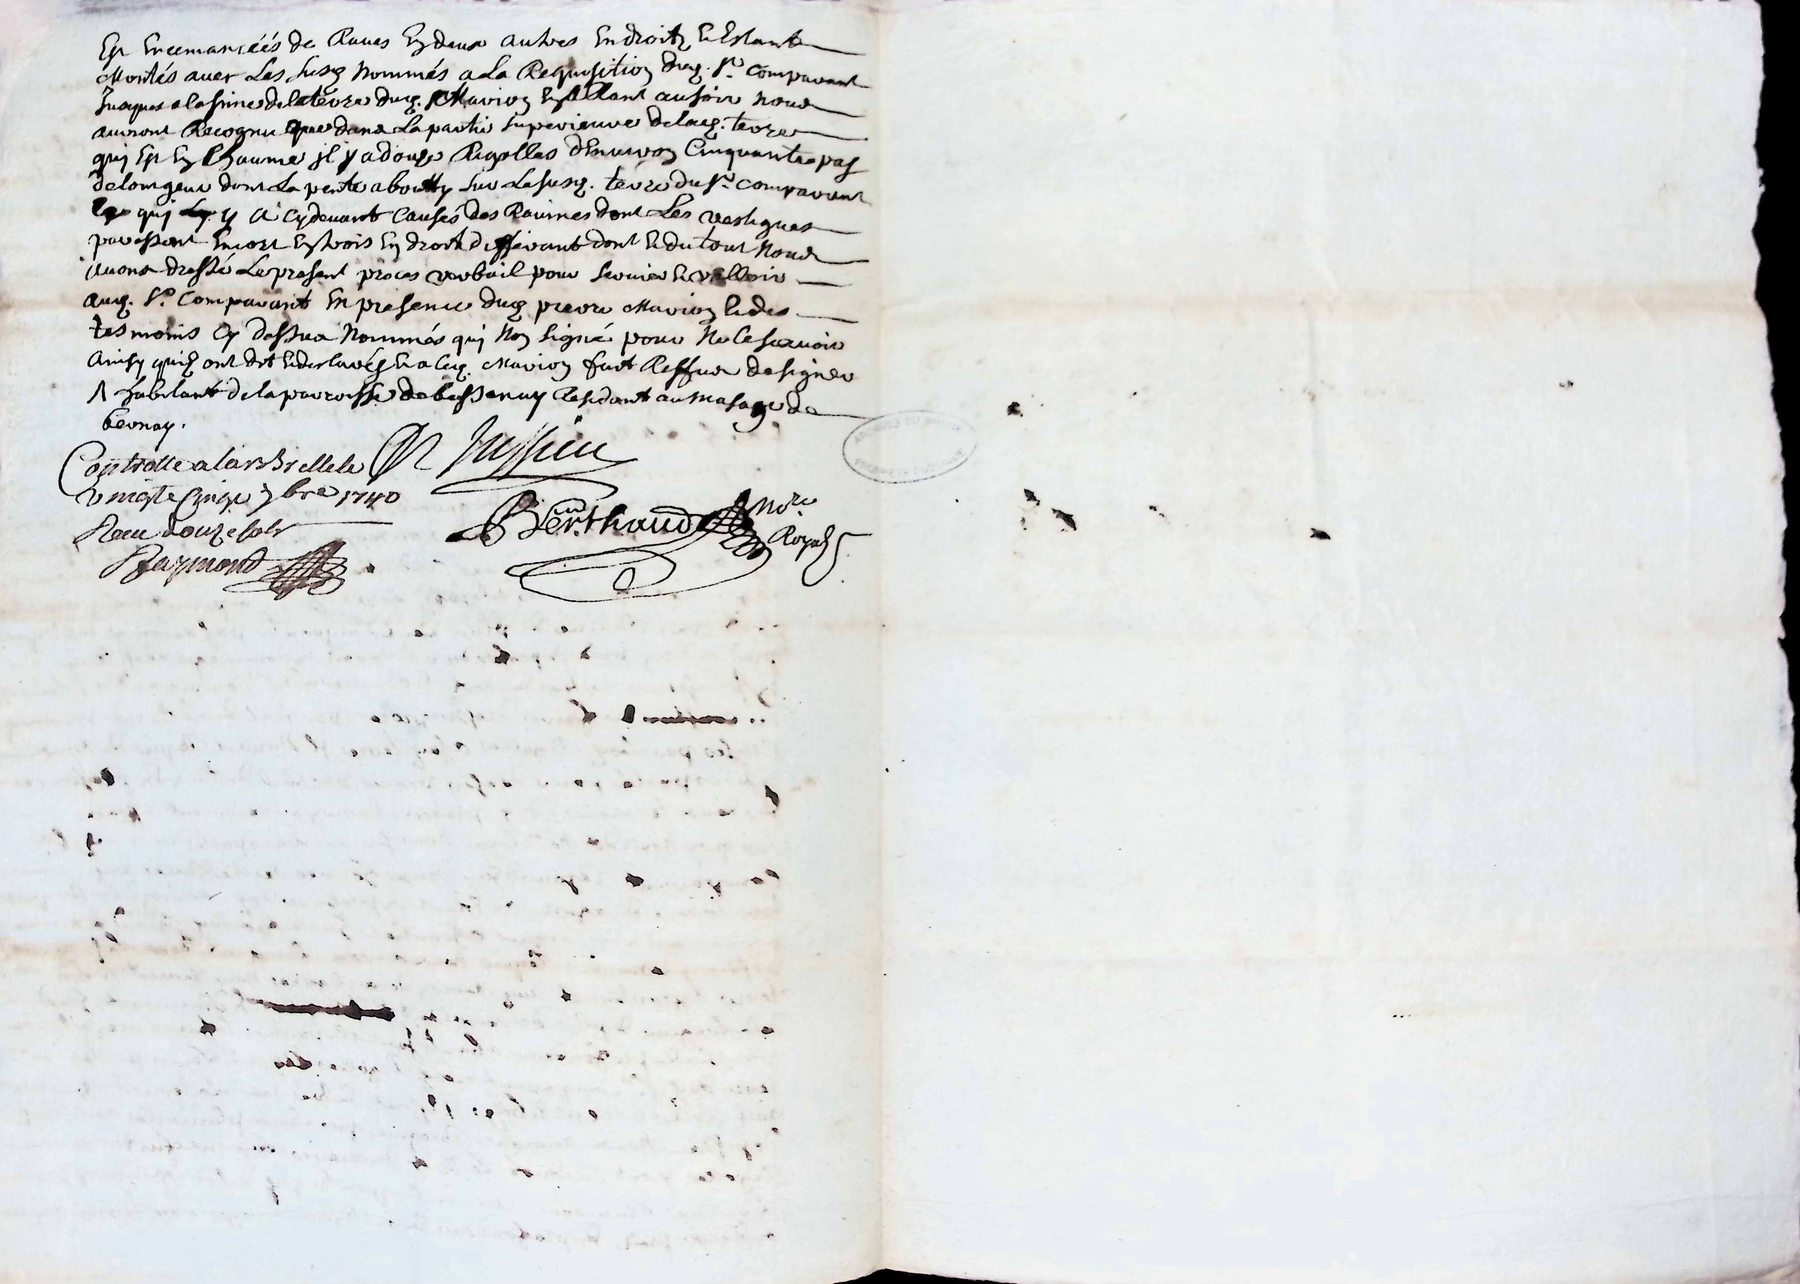 Est Encemancéés de Raves En deux autres Endroitz Et Estant
Montés avec Les susd. Nommés a La Requisition dud. Sr. Comparant
Jusques a la sime de la terre dud. Marion En allant au soir Nous
avront Recognu que dans La partie superieure de lad. terre
qui Est En Chaume jl y a douze Rigolles d'Environ Cinquante pas
de longeur dont La pente aboutty sur La susd. terre du Sr. Comparant
qui y a cy devant Causés des Ravines dont Les vestiges
paroissent Encore En trois Endroit differant dont Et du tout Nous
avons dressé Le present proces verbail pour servir Et valloir
aud. Sr. Comparant En presence dud. pierre Marion Et des
tesmoins Cy dessus Nommés qui Non signé pour Ne le scavoir
Ainsy quilz ont dit Et declarés Et a led. Marion fait Reffus de signer
Λ habitant de la parroisse de bessenay Residant au masage de
bernay.
Controlle a larbrelle le
vingt Cinq 7bre 1740
Receu douze sols
Raymond
Jussieu
Berthaud Nore.
Royal